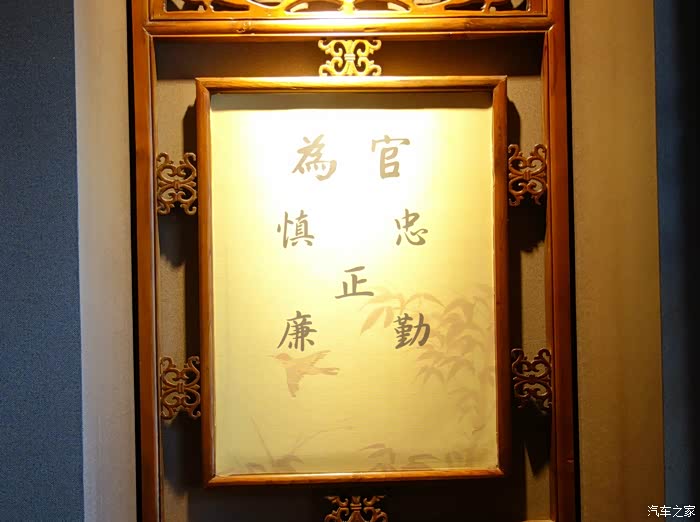 為 官
慎 忠
正
廉 勤
汽车之家